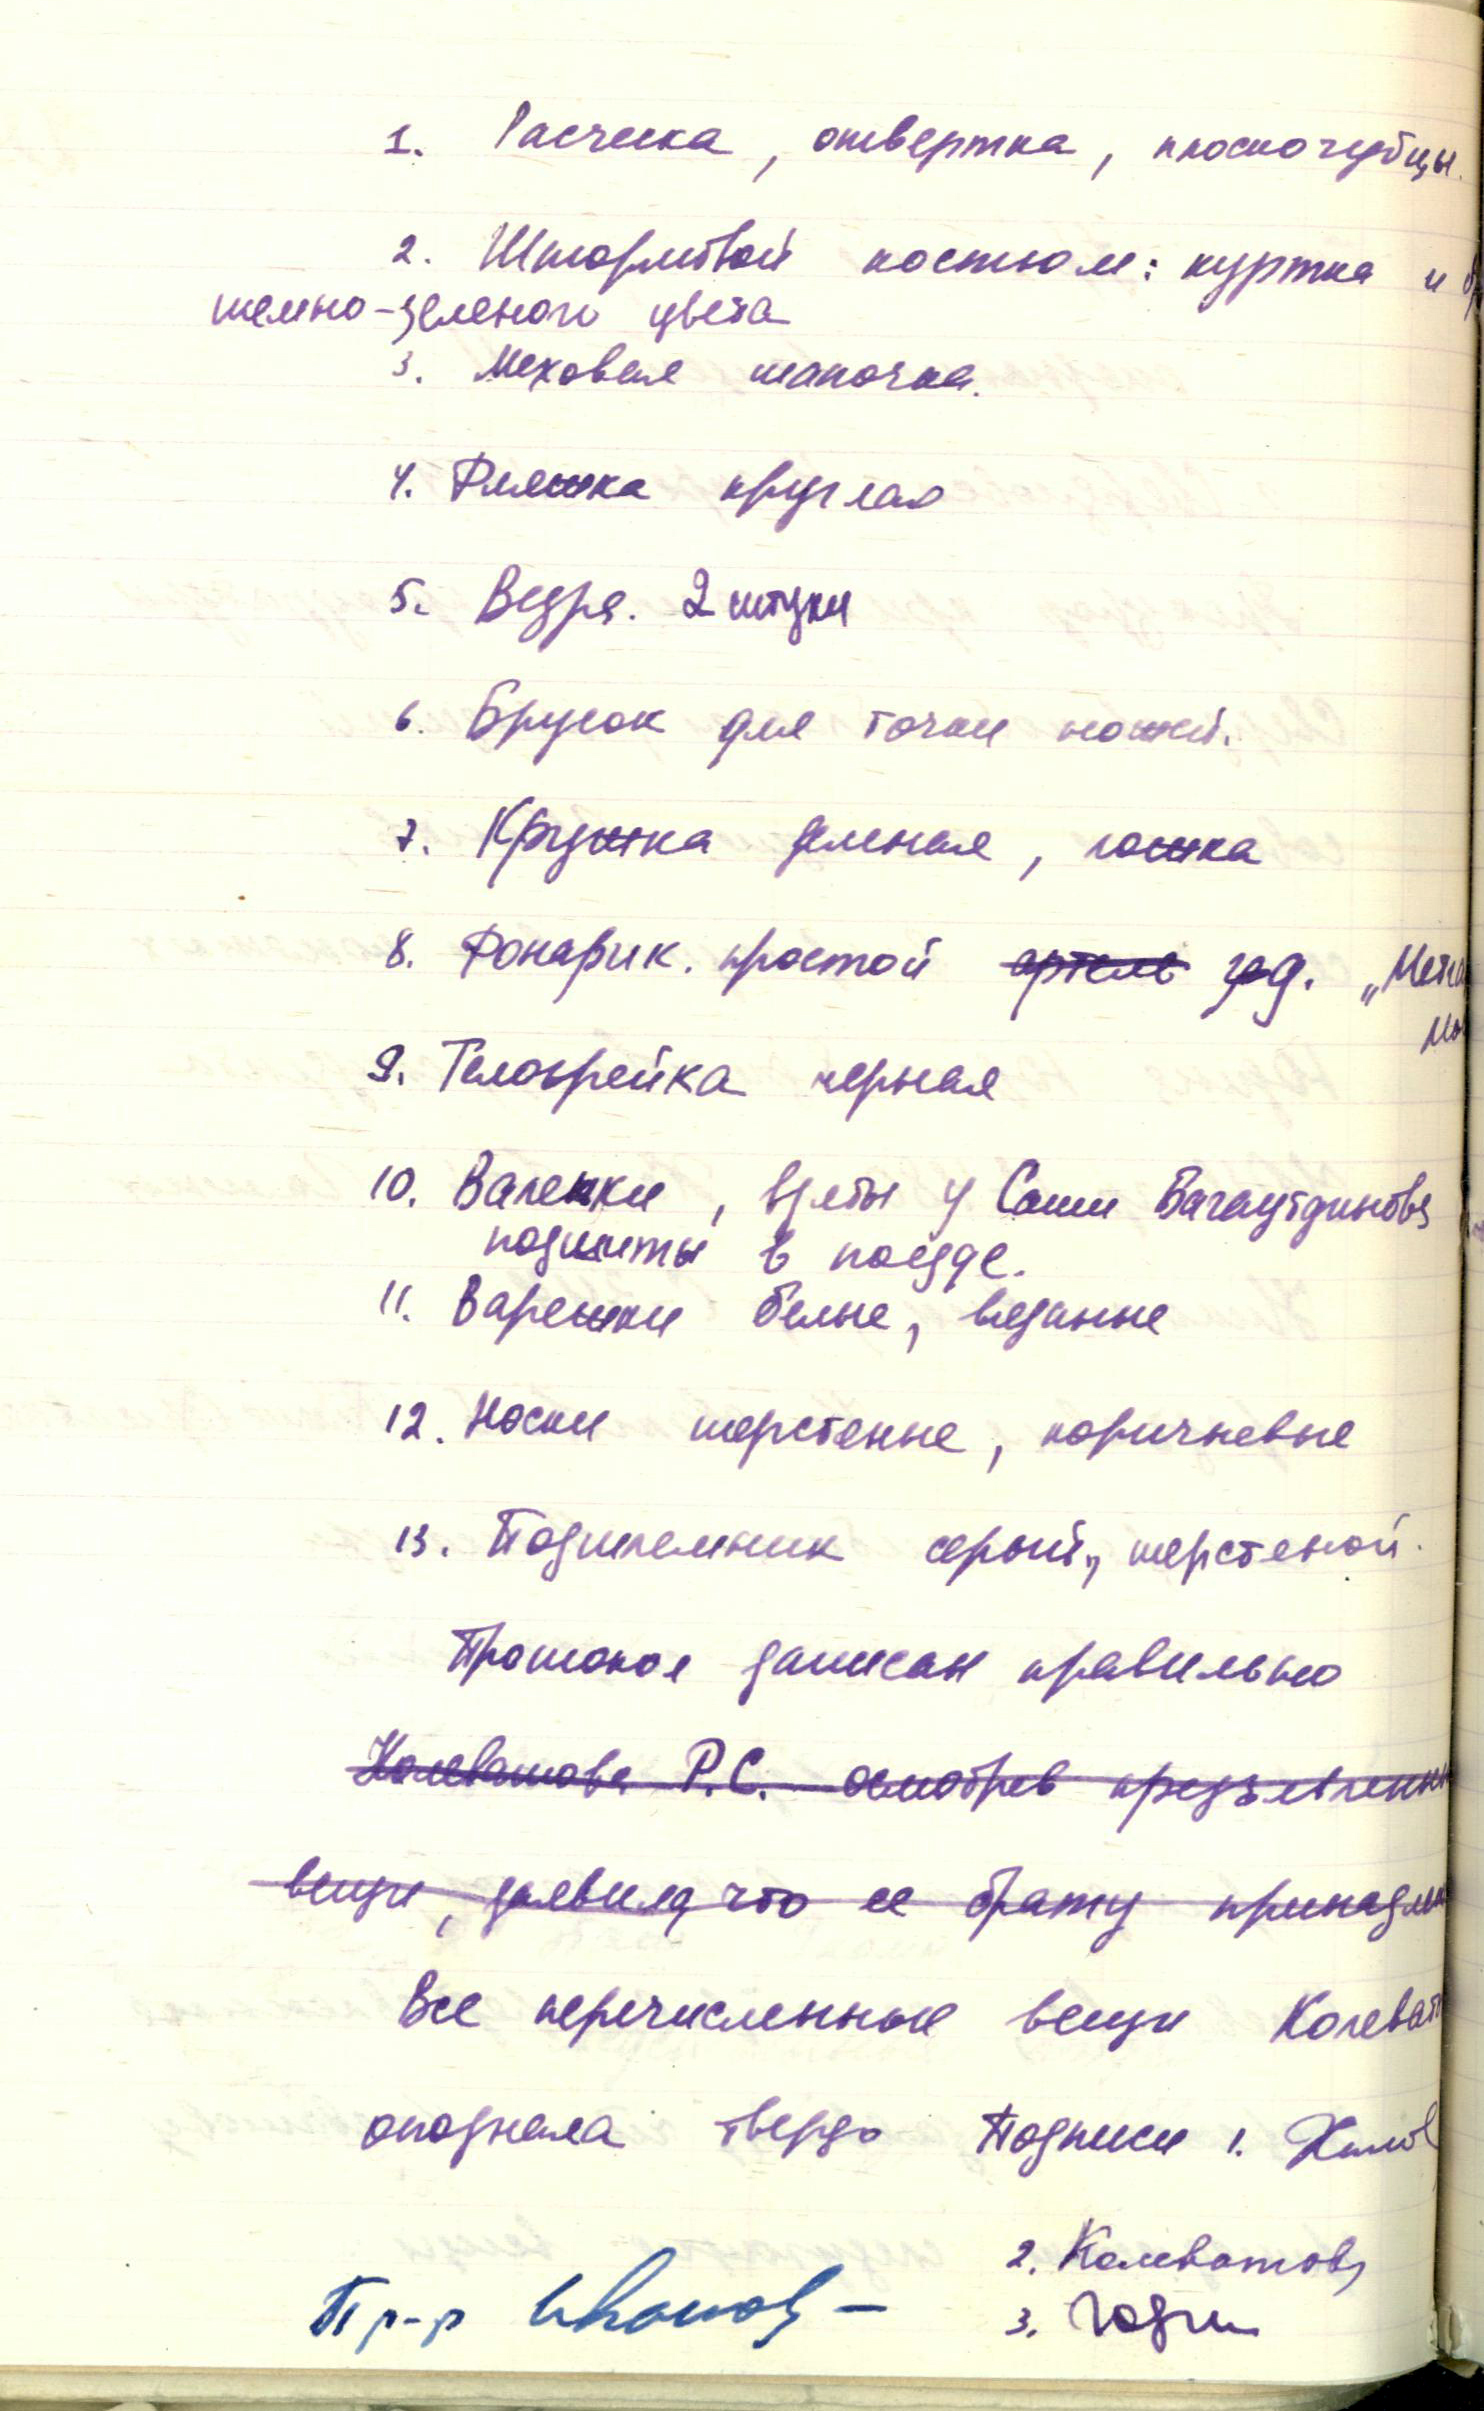 1. Расческа, отвертка, плоскогубцы.
2. Штормовой костюм: куртка и
темно-зеленого цвета
3. Меховая шапочка.
4. Фляжка круглая
5. Ведра. 2 штуки
6. Брусок для точки ножей.
7. Кружка зеленая, ложка
8. Фонарик. простой артель
9. Телогрейка черная
10. Валенки, взяты у Саши Багаутдинова
подшиты в поезде.
11. Варежки белые, вязанные
12. Носки шерстенные, коричневые
13. Подшлемник серый, шерстеной.
Протокол записан правильно
Колеватова Р.С. осмотрев предъявленн
вещи, заявила, что ее брату принадле
Все перечисленные вещи Колеват
опознала твердо Подписи 1.
2. Колеватова
Пр-р Иванов –
3.